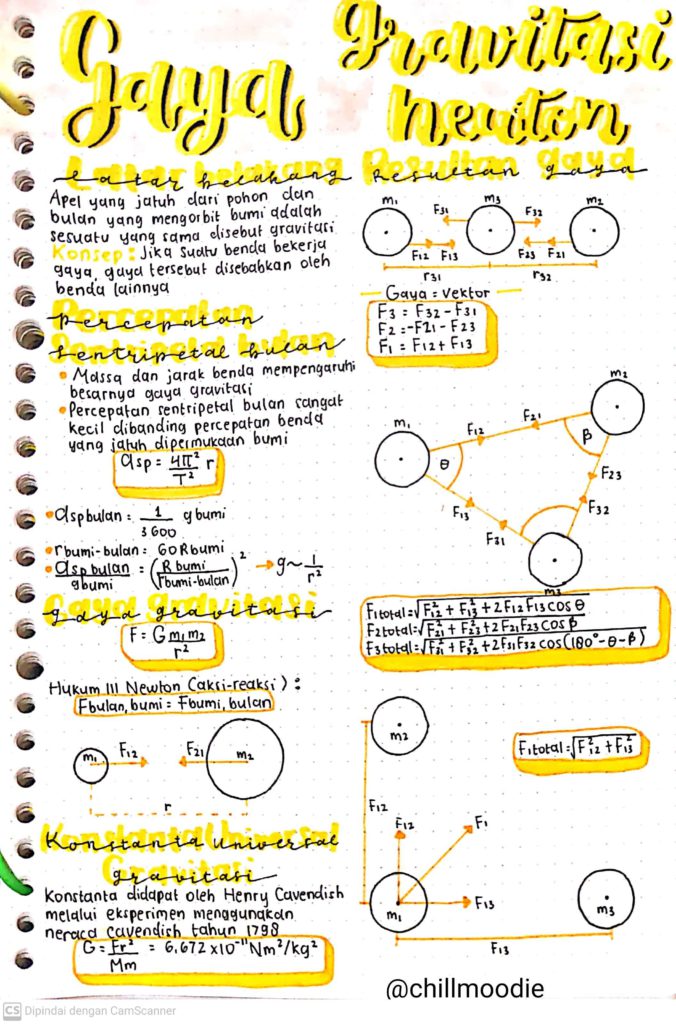 Gaya
Gravitasi
Newton
Latar belakang
Apel yang jatuh dari pohon dan
bulan yang mengorbit bumi adalah
sesuatu yang sama disebut gravitasi
Konsep : Jika suatu benda bekerja
gaya, gaya tersebut disebabkan oleh
benda lainnya
Percepatan
Sentripetal bulan
• Massa dan jarak benda mempengaruhi
besarnya gaya gravitasi
• Percepatan sentripetal bulan sangat
kecil dibanding percepatan benda
yang jatuh dipermukaan bumi
asp = 4π²/T² r
• asp bulan = 1/3600 g bumi
• r bumi-bulan = 60 R bumi
• asp bulan/g bumi = (R bumi/r bumi-bulan)² → g ~ 1/r²
gaya gravitasi
F = G m₁m₂/r²
Hukum III Newton (aksi-reaksi) :
Fbulan, bumi = Fbumi, bulan
m₁ F₁₂ F₂₁ m₂
r
Konstanta Universal
Gravitasi
Konstanta didapat oleh Henry Cavendish
melalui eksperimen menggunakan
neraca cavendish tahun 1798
G = Fr²/Mm = 6.672 x 10⁻¹¹ Nm²/kg²
Resultan gaya
m₁ m₃ m₂
F₃₁ F₃₂
F₁₂ F₁₃ F₂₃ F₂₁
r₃₁ r₃₂
Gaya = vektor
F₃ = F₃₂ - F₃₁
F₂ = -F₂₁ - F₂₃
F₁ = F₁₂ + F₁₃
m₂
m₁ F₁₂ F₂₁
θ β
F₂₃
F₁₃ F₃₂
F₃₁
m₃
F₁total = √F₁₂² + F₁₃² + 2F₁₂F₁₃ cos θ
F₂total = √F₂₁² + F₂₃² + 2F₂₁F₂₃ cos β
F₃total = √F₃₁² + F₃₂² + 2F₃₁F₃₂ cos (180° - θ - β)
m₂
F₁total = √F₁₂² + F₁₃²
F₁₂
F₁₂ F₁
m₁ F₁₃ m₃
F₁₃
@chillmoodie
CS Dipindai dengan CamScanner